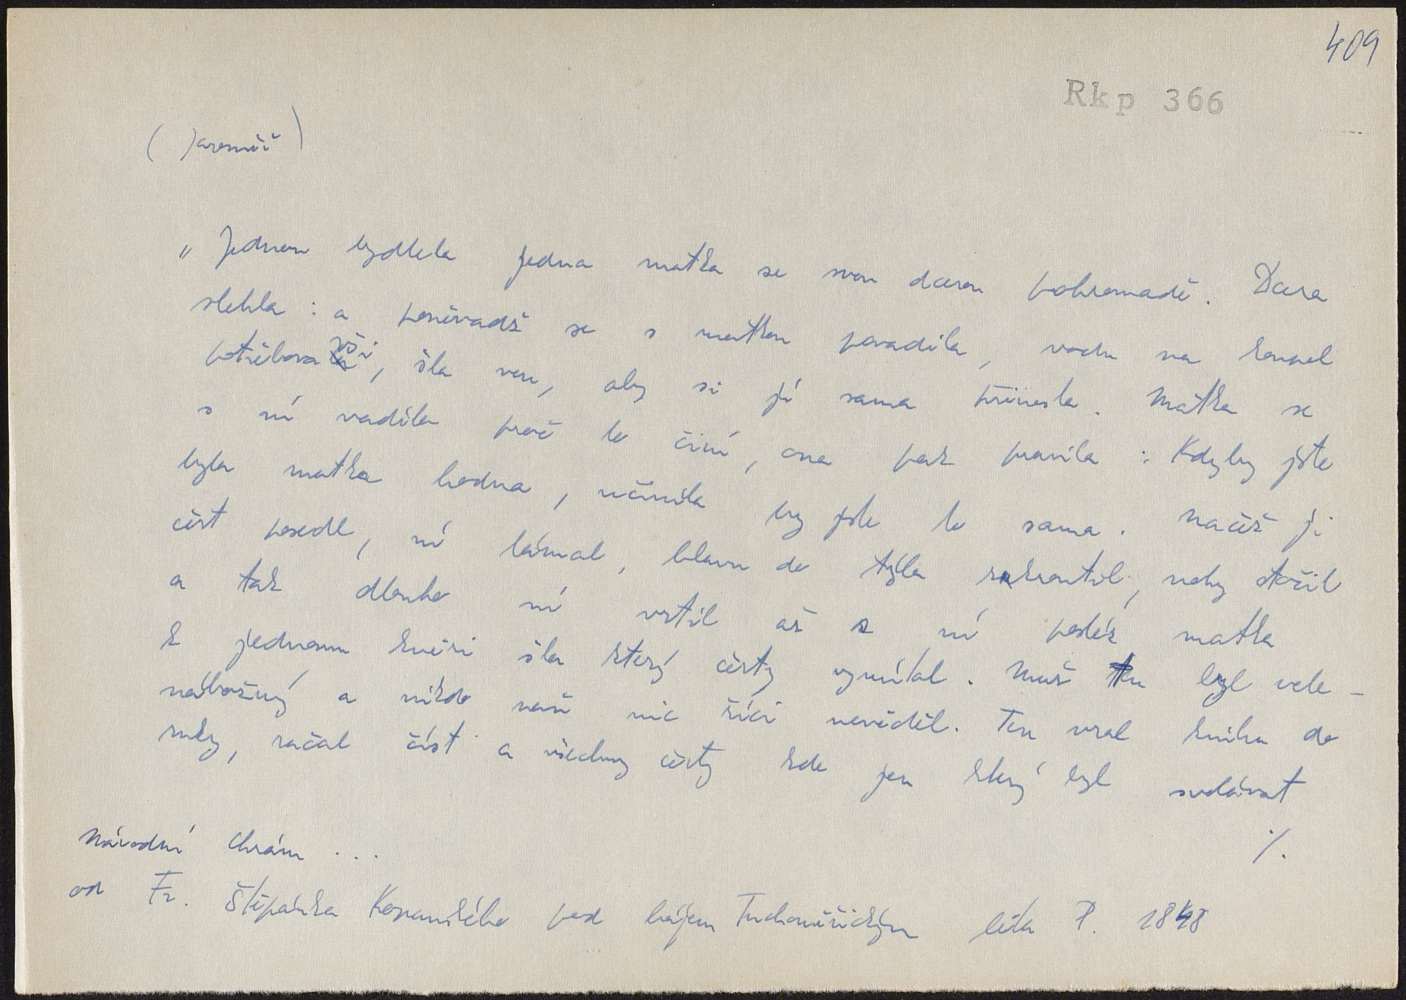 409
Rkp 366
(Jaroměř)
„Jednou bydlela jedna matka se svou dcerou pohromadě. Dcera
slehla: a poněvadž se s matkou povadila, vodu na koupel
potřebovavši, šla ven, aby si jí sama přinesla. Matka se
s ní vadila proč to činí, ona pak pravila: Kdyby jste
byla matka hodna, učinila by jste to sama. Načež ji
čert posedl, ní lámal, hlavu do týla zakroutil, nohy otočil
a tak dlouho ní vrtil až s ní posléz matka
k jednomu knězi šla který čerty vymítal. Muž ten byl velo-
nábožný a nikdo naň nic říci nevěděl. Ten vzal knihu do
ruky, začal číst a všechny čerty kde jen který byl svolávat
./.
Národní chrám ...
od Fr. Štěpánka Kopanského pod hájem Tuchoměřickým léta P. 1848